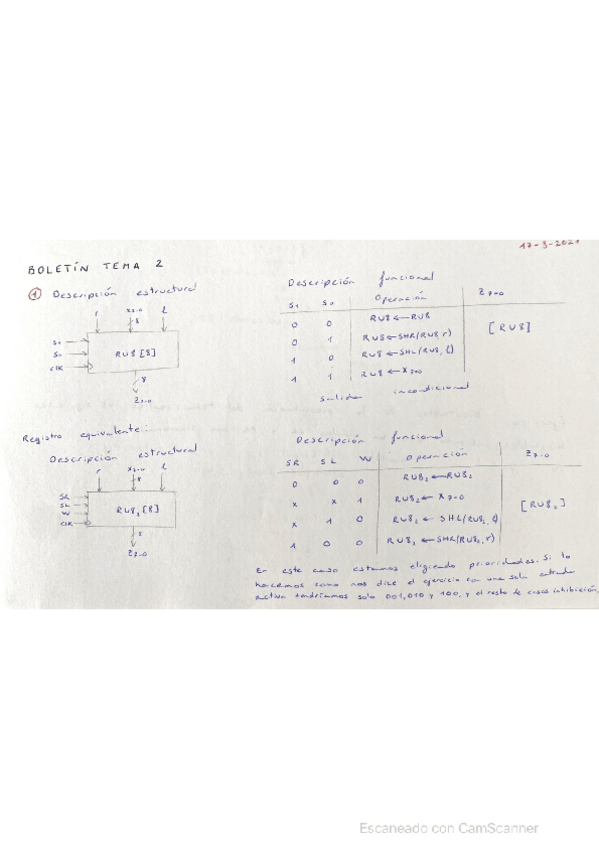 17-3-2021
BOLETÍN TEMA 2
① Descripción estructural
r X7:0 l
8
S1
S0
CLK
RU8 [8]
8
Z7:0
Descripción funcional
S1 S0 Operación Z7:0
0 0 RU8 ← RU8 [RU8]
0 1 RU8 ← SHR(RU8, r)
1 0 RU8 ← SHL(RU8, l)
1 1 RU8 ← X7:0
salida incondicional
Registro equivalente:
Descripción estructural
r X7:0 l
8
SR
SL
W
CLK
RU82 [8]
8
Z7:0
Descripción funcional
SR SL W Operación Z7:0
0 0 0 RU82 ← RU82
x x 1 RU82 ← X7:0 [RU82]
x 1 0 RU82 ← SHL(RU82, l)
1 0 0 RU82 ← SHR(RU82, r)
En este caso estamos eligiendo prioridades. Si lo
hacemos como nos dice el ejercicio con una sola entrada
activa tendríamos solo 001, 010 y 100, y el resto de casos inhibición,
Escaneado con CamScanner